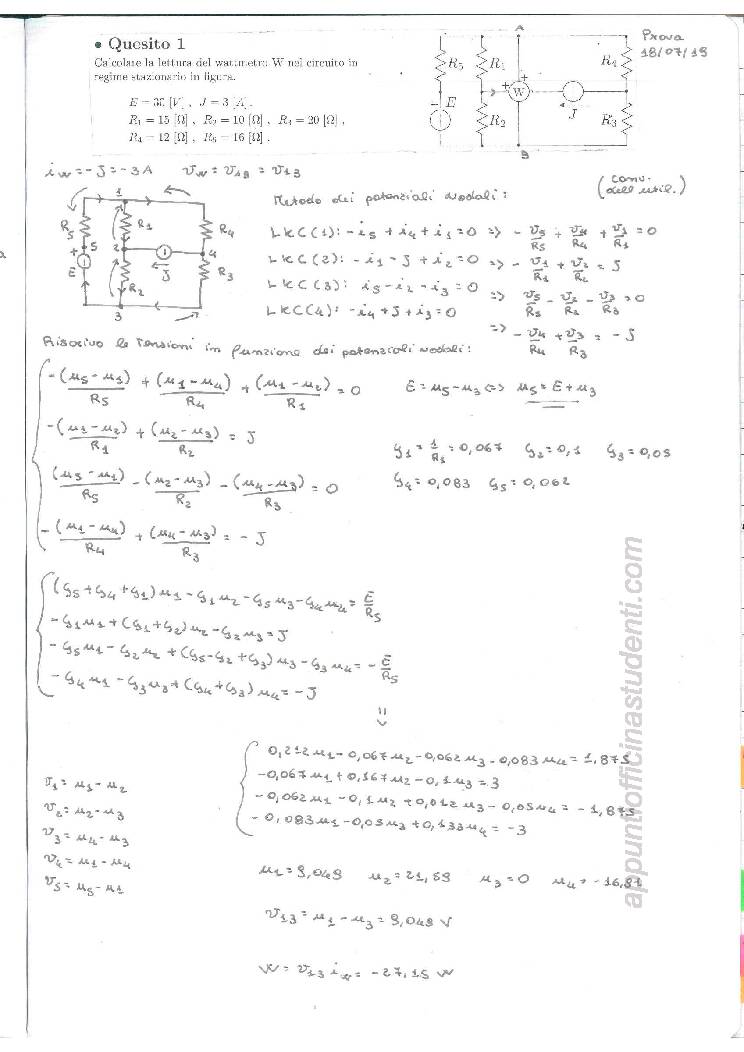 Prova
18/07/19
• Quesito 1
Calcolare la lettura del wattmetro W nel circuito in
regime stazionario in figura.
E = 30 [V] , J = 3 [A] .
R₁ = 15 [Ω] , R₂ = 10 [Ω] , R₃ = 20 [Ω] ,
R₄ = 12 [Ω] , R₅ = 16 [Ω] .
A
R₅ R₁ R₄
E W J
R₂ R₃
B
i_W = -J = -3A   v_W = v_AB = v₁₃
1
R₅ R₁ R₄
5 2 4
E J
R₂ R₃
3
Metodo dei potenziali nodali: (conv. dell'util.)
LKC(1): -i₅ + i₄ + i₁ = 0 => -v₅/R₅ + v₄/R₄ + v₁/R₁ = 0
LKC(2): -i₁ - J + i₂ = 0 => -v₁/R₁ + v₂/R₂ = J
LKC(3): i₅ - i₂ - i₃ = 0 => v₅/R₅ - v₂/R₂ - v₃/R₃ = 0
LKC(4): -i₄ + J + i₃ = 0 => -v₄/R₄ + v₃/R₃ = -J
Riscrivo le tensioni in funzione dei potenziali nodali:
-(u₅ - u₁)/R₅ + (u₁ - u₄)/R₄ + (u₁ - u₂)/R₁ = 0   E = u₅ - u₃ <=> u₅ = E + u₃
-(u₁ - u₂)/R₁ + (u₂ - u₃)/R₂ = J   G₁ = 1/R₁ = 0,067   G₂ = 0,1   G₃ = 0,05
(u₅ - u₁)/R₅ - (u₂ - u₃)/R₂ - (u₄ - u₃)/R₃ = 0   G₄ = 0,083   G₅ = 0,062
-(u₁ - u₄)/R₄ + (u₄ - u₃)/R₃ = -J
(G₅ + G₄ + G₁)u₁ - G₁u₂ - G₅u₃ - G₄u₄ = E/R₅
-G₁u₁ + (G₁ + G₂)u₂ - G₂u₃ = J
-G₅u₁ - G₂u₂ + (G₅ - G₂ + G₃)u₃ - G₃u₄ = -E/R₅
-G₄u₁ - G₃u₃ + (G₄ + G₃)u₄ = -J
=>
0,212u₁ - 0,067u₂ - 0,062u₃ - 0,083u₄ = 1,875
-0,067u₁ + 0,167u₂ - 0,1u₃ = 3
-0,062u₁ - 0,1u₂ + 0,012u₃ - 0,05u₄ = -1,875
-0,083u₁ - 0,05u₃ + 0,133u₄ = -3
v₁ = u₁ - u₂
v₂ = u₂ - u₃
v₃ = u₄ - u₃
v₄ = u₁ - u₄
v₅ = u₅ - u₁
u₁ = 9,049   u₂ = 21,59   u₃ = 0   u₄ = -16,91
v₁₃ = u₁ - u₃ = 9,049 V
W = v₁₃ i_W = -27,15 W
appuntiofficinastudenti.com